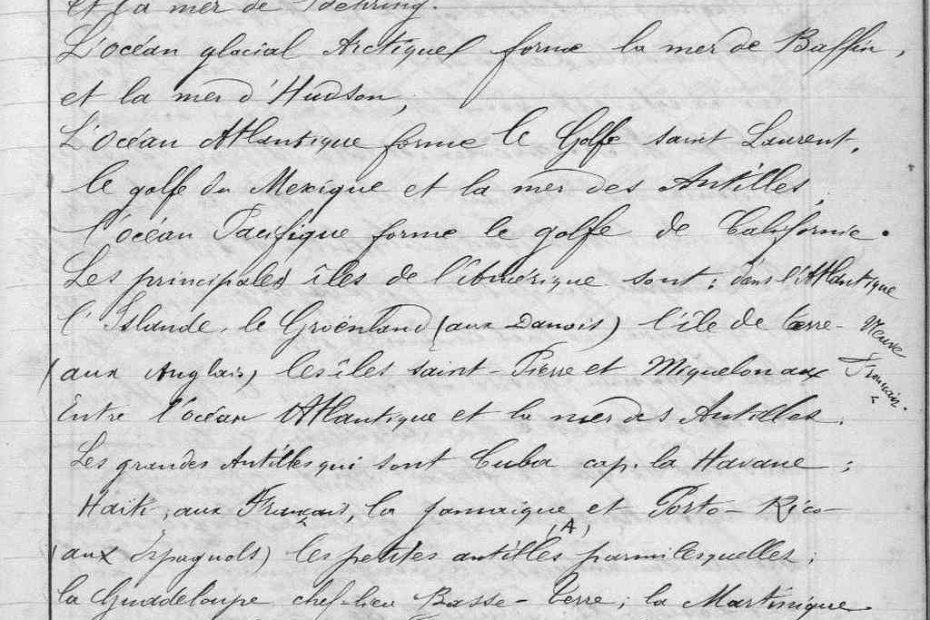 et la mer de Boehring.
L'océan glacial Arctique forme la mer de Baffin,
et la mer d'Hudson,
L'océan Atlantique forme le Golfe saint Laurent,
le golfe du Mexique et la mer des Antilles,
l'océan Pacifique forme le golfe de Californie.
Les principales îles de l'Amérique sont : dans l'Atlantique
l'Islande, le Groënland (aux Danois) l'île de terre-Neuve
(aux Anglais) les îles saint-Pierre et Miquelon aux Français.
Entre l'océan Atlantique et la mer des Antilles.
Les grandes Antilles qui sont Cuba cap. la Havane ;
Haïti, aux Français, la jamaïque et Porto-Rico
(aux Espagnols) les petites antilles (A) parmi lesquelles ;
la Guadeloupe chef-lieu Basse-Terre ; la Martinique